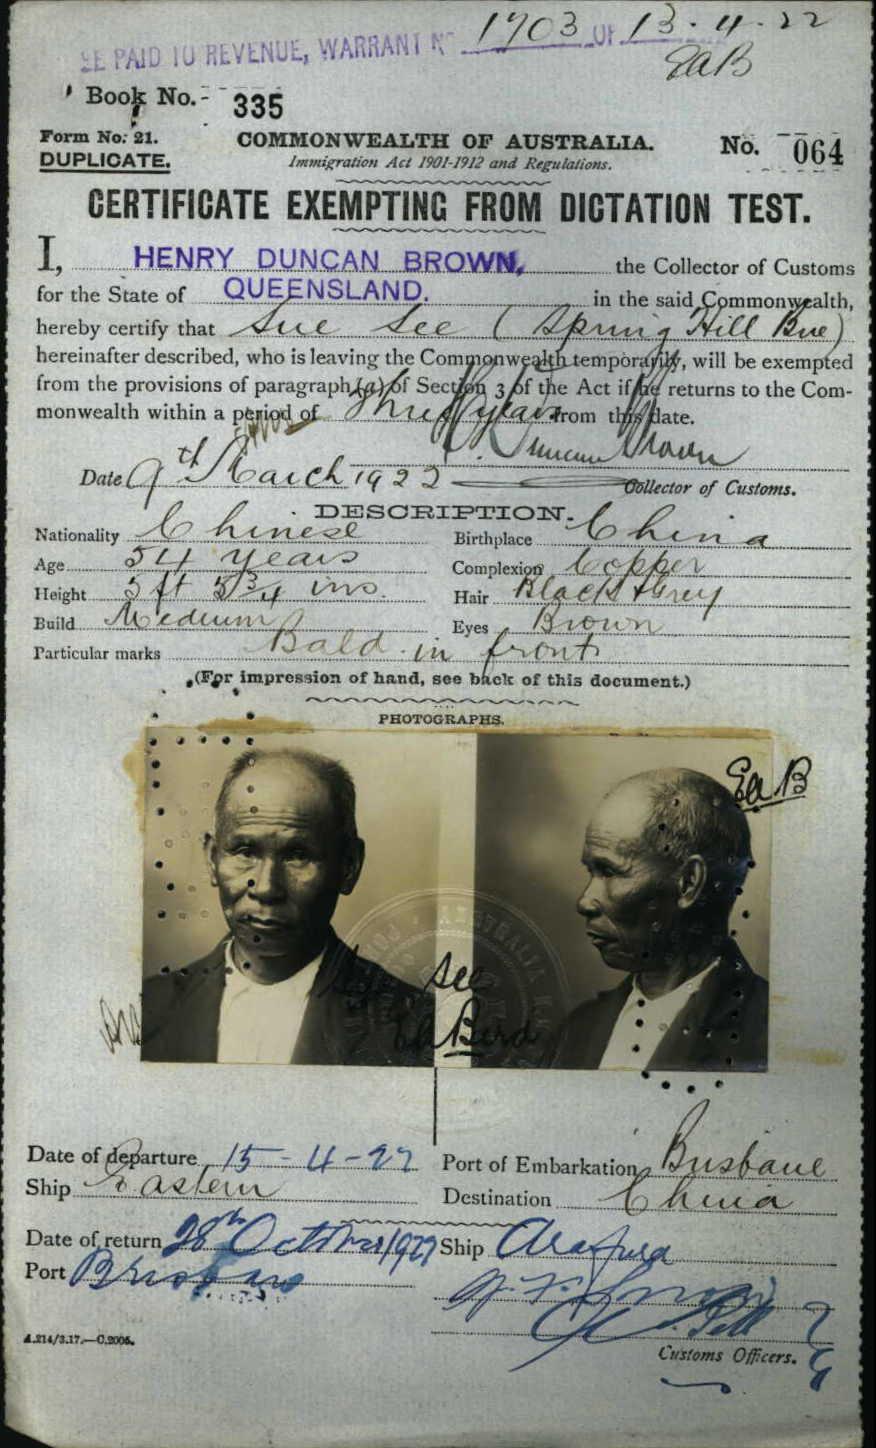 EE PAID TO REVENUE, WARRANT No 1703 OF 13.4.22
EaB
Book No. - 335
Form No. 21.
DUPLICATE.
COMMONWEALTH OF AUSTRALIA.
Immigration Act 1901-1912 and Regulations.
No. 064
CERTIFICATE EXEMPTING FROM DICTATION TEST.
I, HENRY DUNCAN BROWN, the Collector of Customs
for the State of QUEENSLAND. in the said Commonwealth,
hereby certify that Sue See (Spring Hill Bne)
hereinafter described, who is leaving the Commonwealth temporarily, will be exempted
from the provisions of paragraph (a) of Section 3 of the Act if he returns to the Com-
monwealth within a period of Three years from this date.
H. Duncan Brown
Date 9th March 1922
Collector of Customs.
DESCRIPTION.
Nationality Chinese Birthplace China
Age 54 years Complexion Copper
Height 5 ft 5 3/4 ins. Hair Black & Grey
Build Medium Eyes Brown
Particular marks Bald in front
(For impression of hand, see back of this document.)
PHOTOGRAPHS.
EaB
Sue See
Ea Bird
Date of departure 15-4-22 Port of Embarkation Brisbane
Ship Eastern Destination China
Date of return 28th October 1922 Ship Arafura
Port Brisbane
A.214/3.17.—C.2005.
Customs Officers.